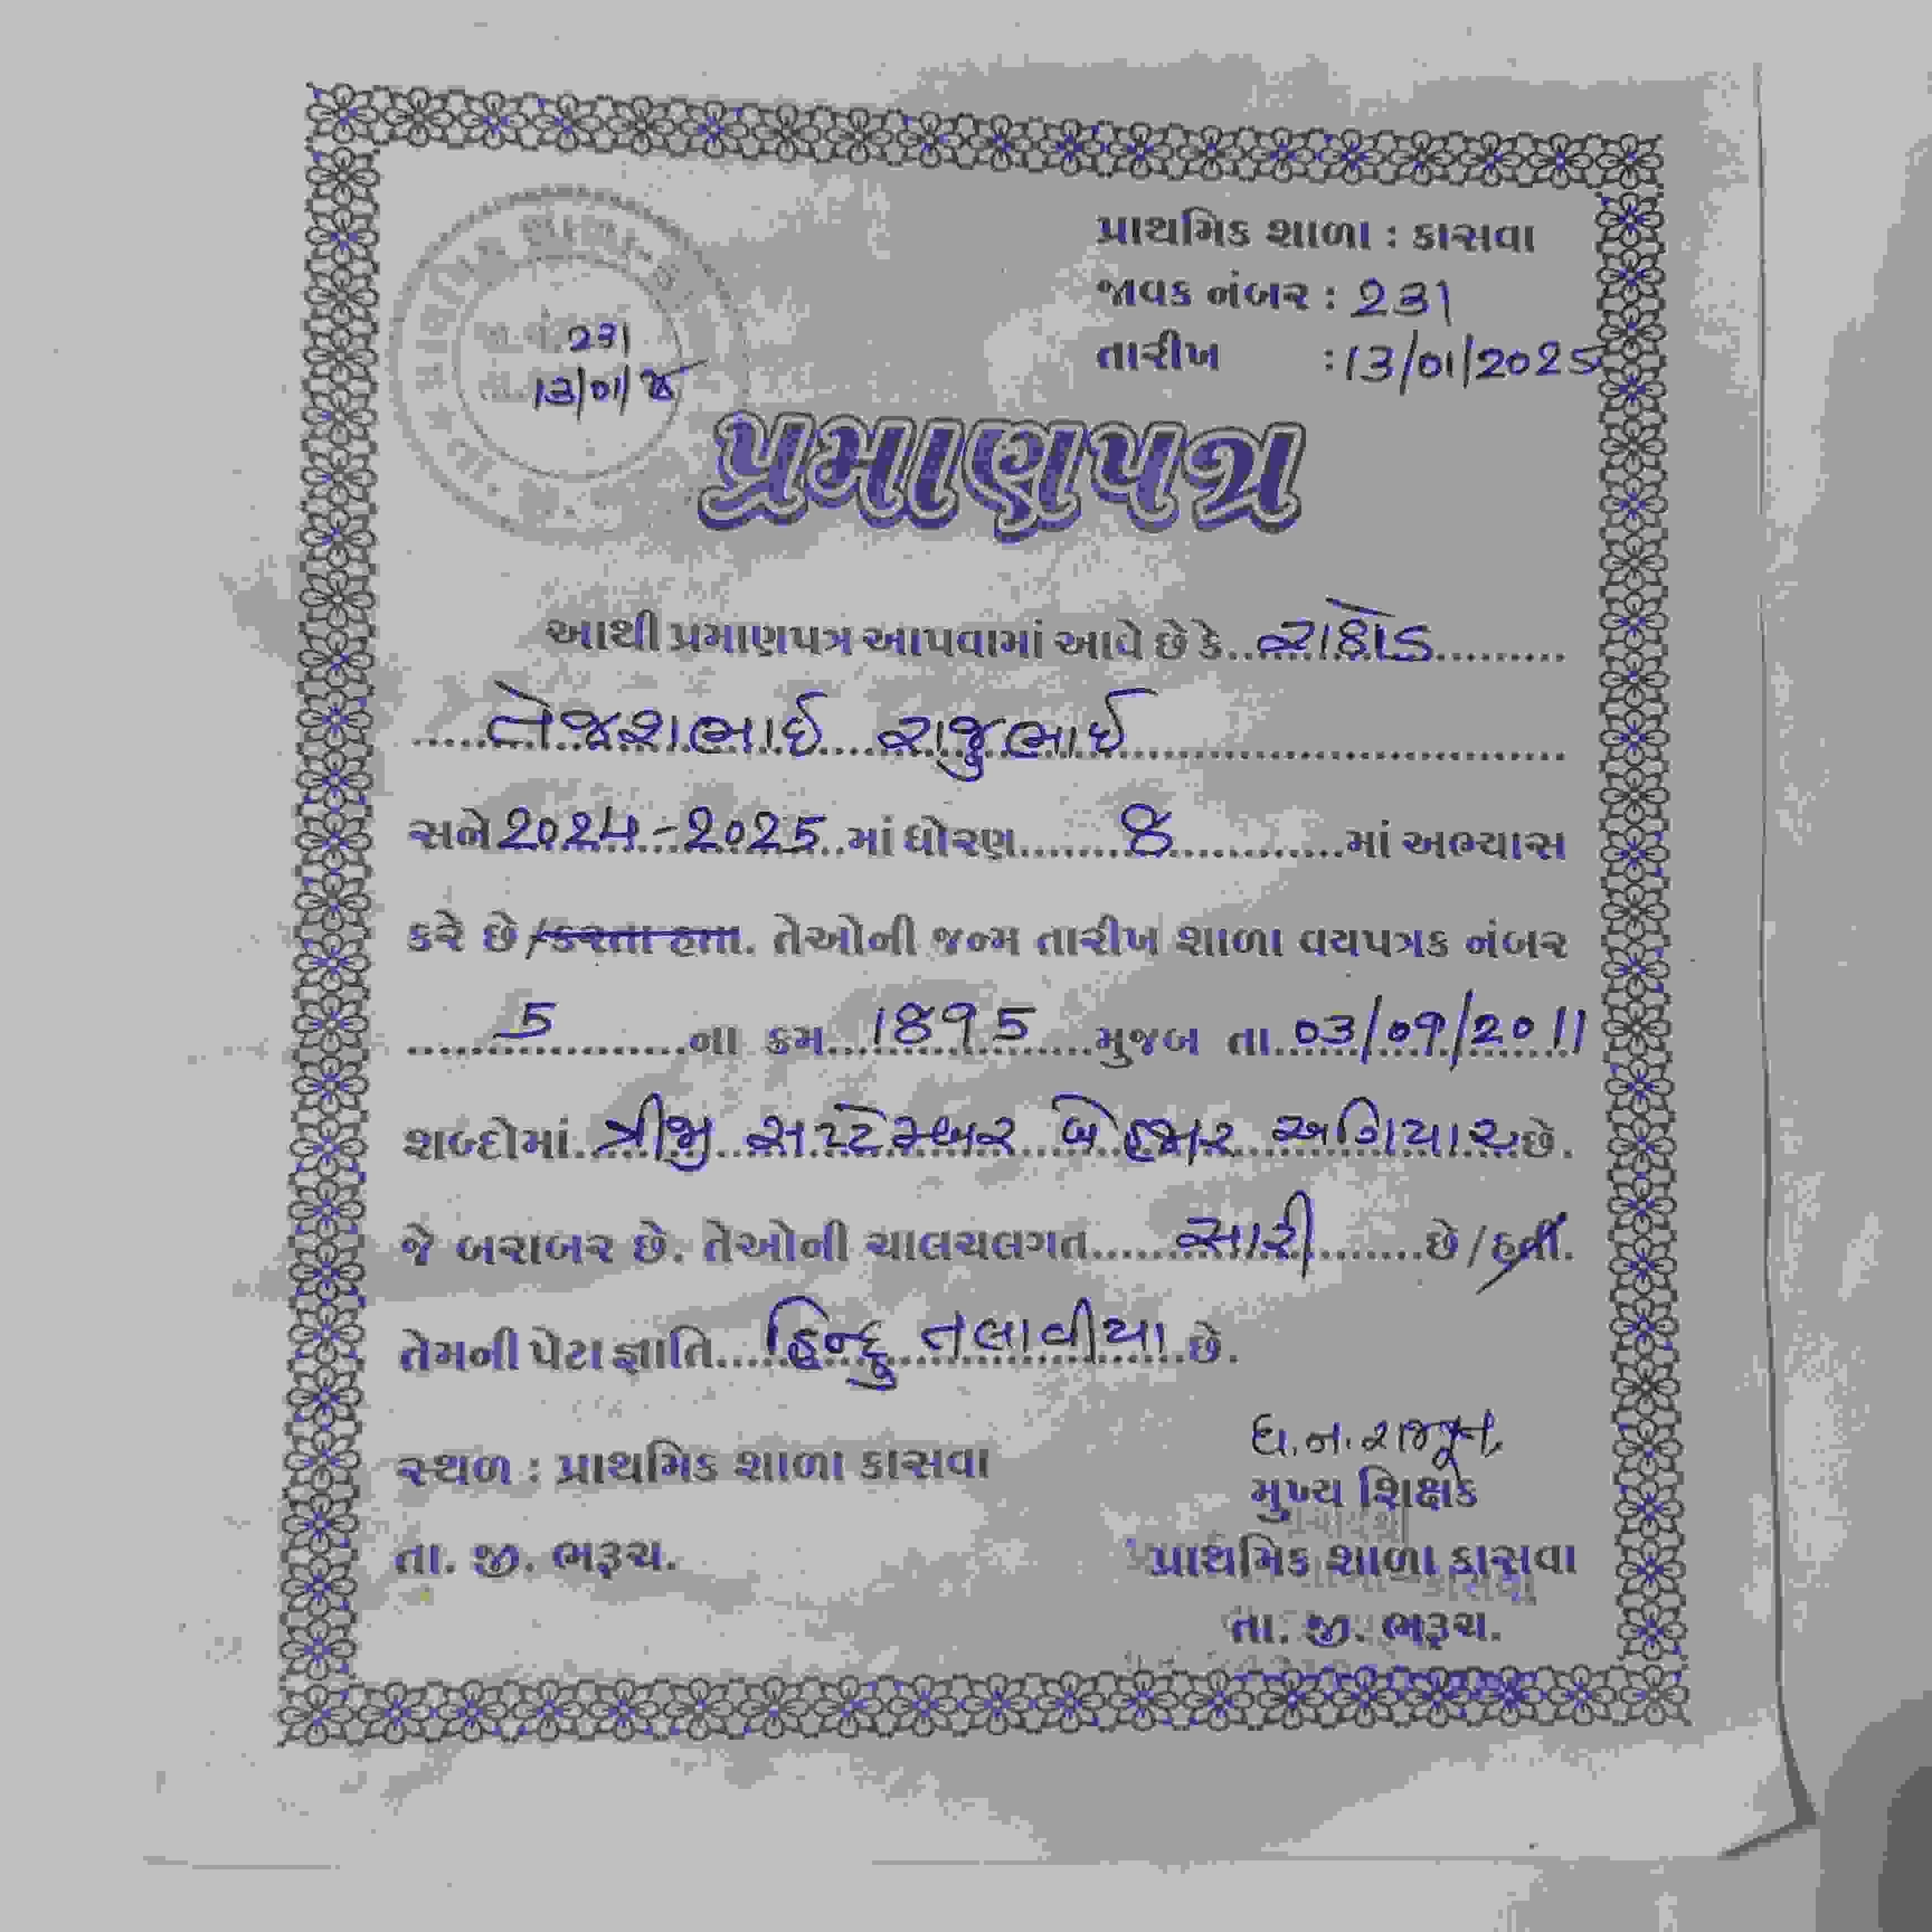 પ્રાથમિક શાળા : કાસવા
જાવક નંબર : 231
તારીખ : 13/01/2025
231
13/01/25
પ્રમાણપત્ર
આથી પ્રમાણપત્ર આપવામાં આવે છે કે રાઠોડ
તેજશભાઈ રાજુભાઈ
સને 2024-2025 માં ધોરણ 8 માં અભ્યાસ
કરે છે/કરતા હતા. તેઓની જન્મ તારીખ શાળા વયપત્રક નંબર
5 ના ક્રમ 1895 મુજબ તા. 03/09/2011
શબ્દોમાં ત્રીજી સપ્ટેમ્બર બે હજાર અગિયાર છે.
જે બરાબર છે. તેઓની ચાલચલગત સારી છે/હતી.
તેમની પેટા જ્ઞાતિ હિન્દુ તલાવીયા છે.
ધ.ન.રાજપૂત
સ્થળ : પ્રાથમિક શાળા કાસવા
મુખ્ય શિક્ષક
તા. જી. ભરૂચ.
પ્રાથમિક શાળા કાસવા
તા. જી. ભરૂચ.